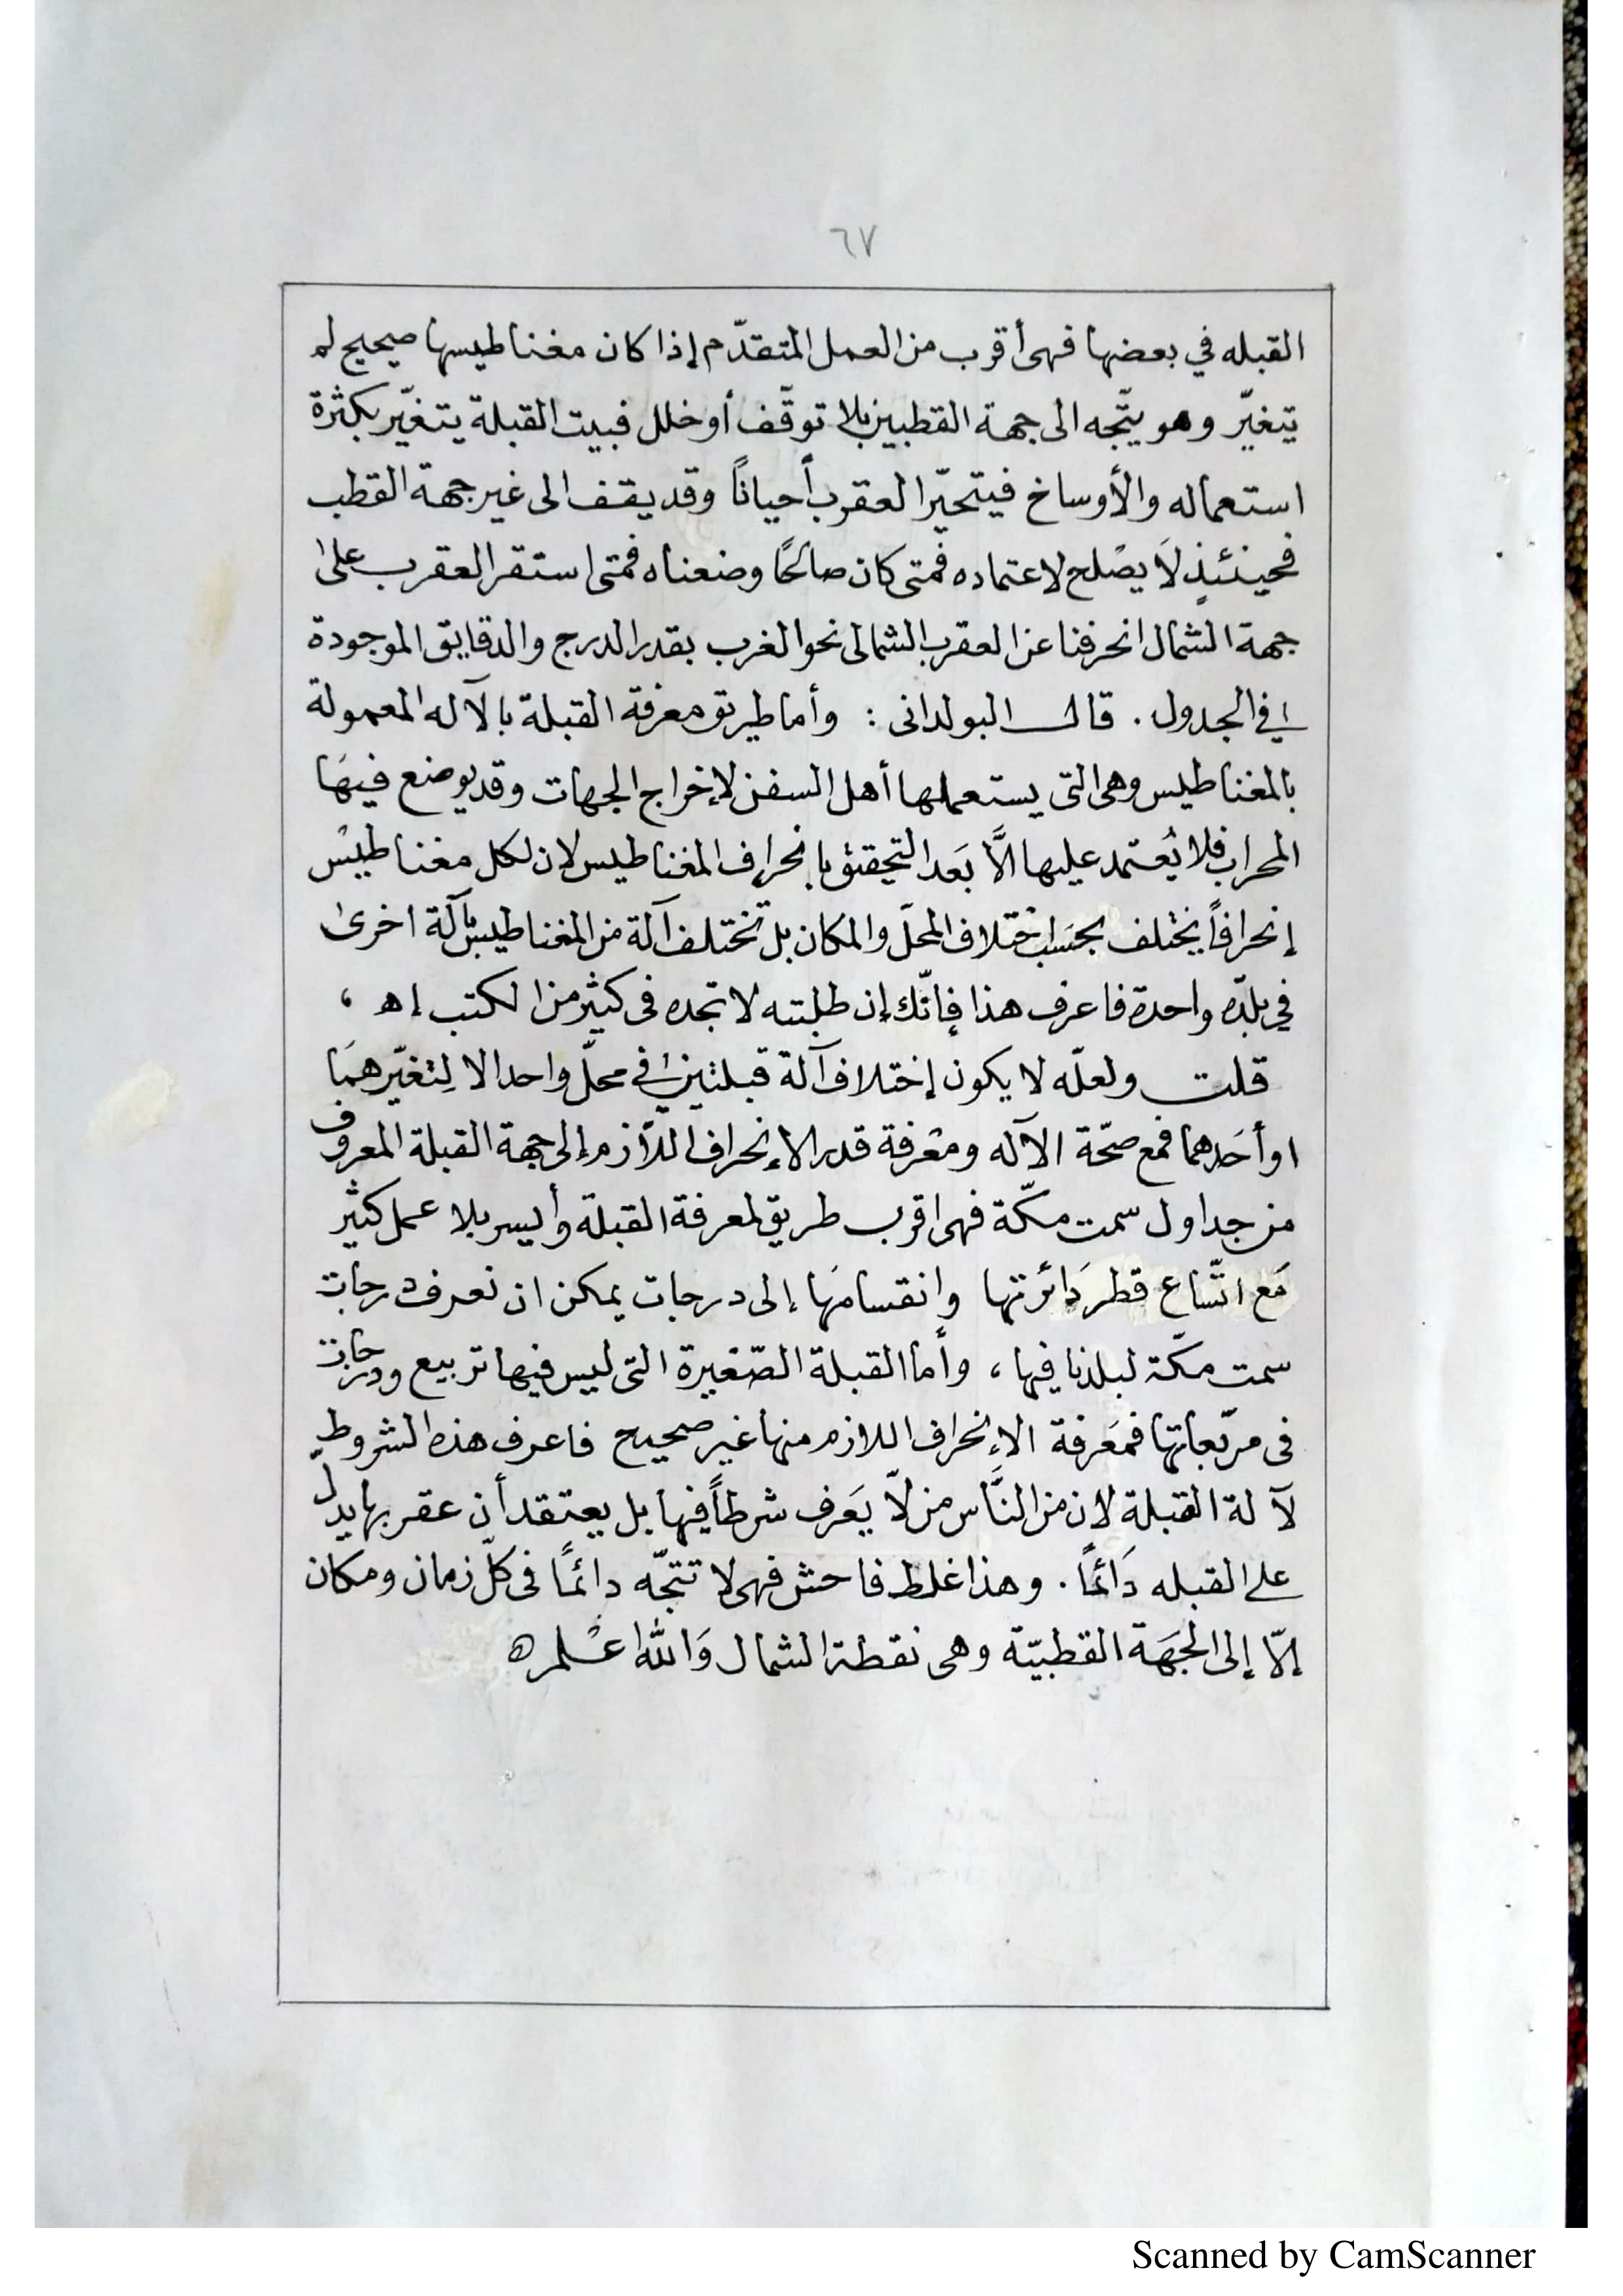 ٦٧
القبله في بعضها فهي أقرب من العمل المتقدّم إذا كان مغناطيسها صحيح لم
يتغيّر وهو يتّجه الى جهة القطبين بلا توقّف أو خلل فبيت القبلة يتغيّر بكثرة
استعماله والأوساخ فيتحيّر العقرب أحياناً وقد يقف الى غير جهة القطب
فحينئيذٍ لَا يصْلح لاعتماده فمتى كان صالحًا وضعناه فمتى استقر العقرب على
جهة الشمال انحرفنا عن العقرب الشمالى نحو الغرب بقدر الدرج والدقايق الموجودة
في الجدول . قال البولدانى : وأما طريق معرفة القبلة بالآله المعمولة
بالمغناطيس وهى التى يستعملها أهل السفن لإخراج الجهات وقد يوضع فيهَا
المحراب فلا يُعتمد عليها الاَّ بَعد التحقيق بإنحراف المغناطيس لان لكل مغناطيس
إنحرافاً يختلف بحسَب اختلاف المحلّ والمكان بل تختلف آلة من المغناطيس بآلة اخرىٰ
في بلدّه واحدة فاعرف هذا فإنّك إن طلبته لا تجده فى كثير من الكتب إه ،
قلت ولعلّه لا يكون إختلاف آلة قبلتين في محلّ واحد الا لِتغيّرهمَا
او أحَدهما فمع صحّة الآله ومعْرفة قدر الإنحراف اللّازم إلى جهة القبلة المعروف
من جداول سمت مكّة فهى اقرب طريق لمعرفة القبلة وأيسر بلا عمل كثير
مَع اتّساع قطر دَائرتها وانقسامهَا إلى درجات يمكن ان نعرف درجات
سمت مكّة لبلدنا فيها ، وأما القبلة الصّغيرة التى ليس فيها تربيع ودرجات
فى مربّعاتها فمعَرفة الإنحراف اللازم منها غير صحيح فاعرف هذه الشروط
لآلة القبلة لان من النَّاس من لاّ يَعرف شرطاً فيها بل يعتقد أن عقربها يدلّ
على القبله دَائمًا . وهذا غلط فاحش فهى لا تتجّه دائمًا فى كلّ زمان ومكان
إلّا إلى الجهَة القطبيّة وهى نقطة الشمال وَالله اعْلم ه
Scanned by CamScanner